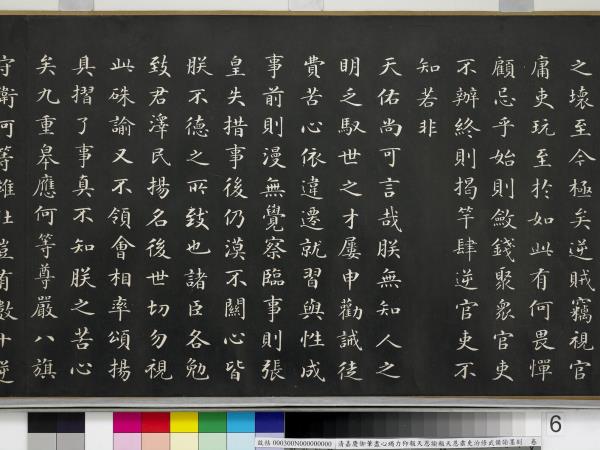 之壞至今極矣逆賊竊視官
庸吏玩至於如此有何畏憚
顧忌乎始則斂錢聚眾官吏
不辦終則揭竿肆逆官吏不
知若非
天佑尚可言哉朕無知人之
明乏馭世之才屢申勸誡徒
費苦心依違遷就習與性成
事前則漫無覺察臨事則張
皇失措事後仍漠不關心皆
朕不德之所致也諸臣各勉
致君澤民揚名後世切勿視
此硃諭又不領會相率頌揚
具摺了事真不知朕之苦心
矣九重皋應何等尊嚴八旗
守衛何等雄壯豈有數十逆
6
故帖 000300N000000000 清嘉慶御筆盡心竭力仰報天恩諭報天恩肅吏治修武備諭墨刻 卷